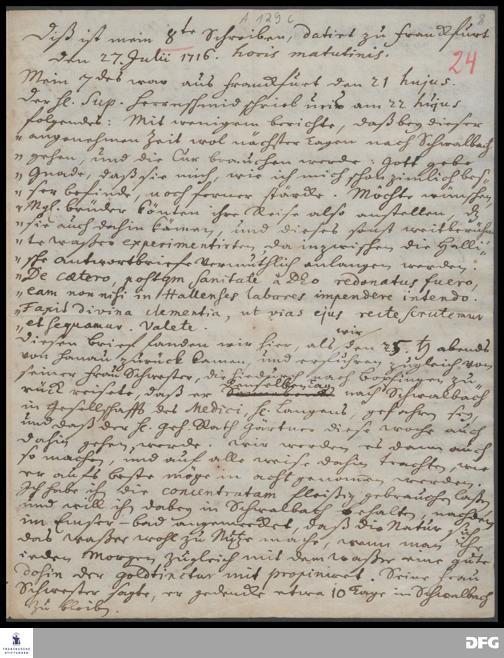 A 129 c
8
Diß ist mein 8te Schreiben, datirt zu Franckfurt
den 27. Julii 1716. horis matutinis.
24
Mein 7des war aus Franckfurt den 21 hujus.
Der Hl. Sup. Herrnschmid schrieb uns am 22 hujus
folgendes: Mit wenigem berichte, daß bey dieser
„ angenehmen Zeit wol nächster tagen nach Schwalbach
„ gehen, und die Cur brauchen werde: Gott gebe
„ Gnade, daß sie mich, wie ich mich schon zimlich bes-
„ ser befinde, noch ferner stärcke. Möchte wünschen,
„ Mgl. brüder könten ihre Reise also anstellen, dz
„ sie auch dahin kämen, und dieses sonst weitberühm-
„ te wasser experimentirten, da inzwischen die Halli-
„ sche antwortbriefe vermuthlich anlangen werden.
„ De cætero, postqm sanitate à Deo redonatus fuero,
„ eam non nisi in Hallenses labores impendere intendo.
„ Faxit divina clementia, ut vias ejus recte scrutemur
„ et sequamur. Valete.
Diesen brief fanden wir hier, als den 25. abends
wir
von Hanau zurück kamen, und erfuhren zugleich von
seiner Frau Schwester, die nach Bopfingen zu-
rück reisete, daß er nach Schwalbach
in Gesellschafft des Medici, H. Langens, gefahren sey,
und daß der H. Geh. Rath Gärtner diese woche auch
dahin gehen werde. Wir werden es dann auch
so machen, und auf alle weise dahin trachten, wie
er aufs beste möge in acht genomen werden.
Ich habe ihn die concentratam fleissig gebrauchen lassen
und will ihn dabey in Schwalbach behalten, nachdem
im Emser-bad angemercket, daß die Natur sich
das wasser wohl zu Nutze mache, wann man ihr
ieden Morgen zugleich mit dem wasser eine gute
dosin der goldtinctur mit propiniret. Seine Frau
Schwester sagte, er gedencke etwa 10 Tage in Schwalbach
zu bleiben.
FRANCKESCHE STIFTUNGEN
DFG